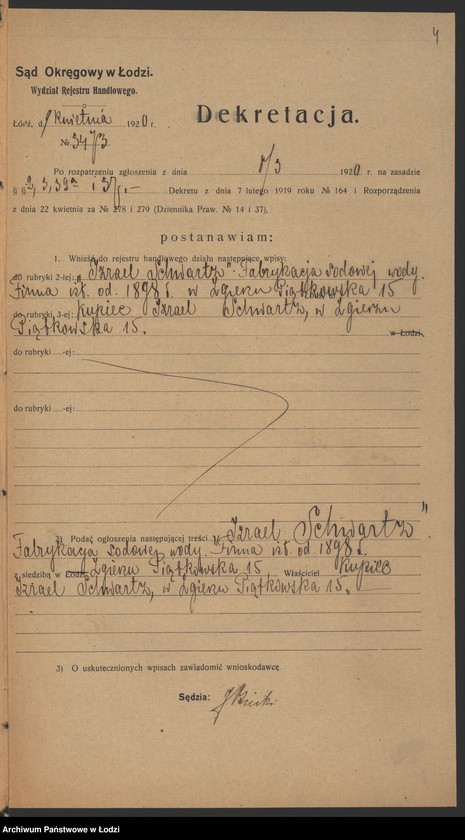 4
Sąd Okręgowy w Łodzi.
Wydział Rejestru Handlowego.
Łódź, d. 1 kwietnia 1920 r.
Dekretacja.
№ 3473
Po rozpatrzeniu zgłoszenia z dnia 1/3 1920 r. na zasadzie
§ § 2, 3, 39 i 37 Dekretu z dnia 7 lutego 1919 roku № 164 i Rozporządzenia
z dnia 22 kwietnia za № 278 i 279 (Dziennika Praw. № 14 i 37),
postanawiam:
1. Wnieść do rejestru handlowego działu następujące wpisy:
do rubryki 2-iej: „Izrael Schwartz" Fabrykacja sodowej wody.
Firma ist. od 1898 r. w Zgierzu Piątkowska 15
do rubryki 3-ej: Kupiec Izrael Schwartz, w Zgierzu
Piątkowska 15. w Łodzi
do rubryki -ej:
do rubryki -ej:
2) Podać ogłoszenia następującej treści „Izrael Schwartz"
Fabrykacja sodowej wody. Firma ist. od 1898 r.
z siedzibą w Łodzi Zgierzu Piątkowska 15. Właściciel Kupiec
Izrael Schwartz, w Zgierzu Piątkowska 15.
3) O uskutecznionych wpisach zawiadomić wnioskodawcę
Sędzia:
Archiwum Państwowe w Łodzi